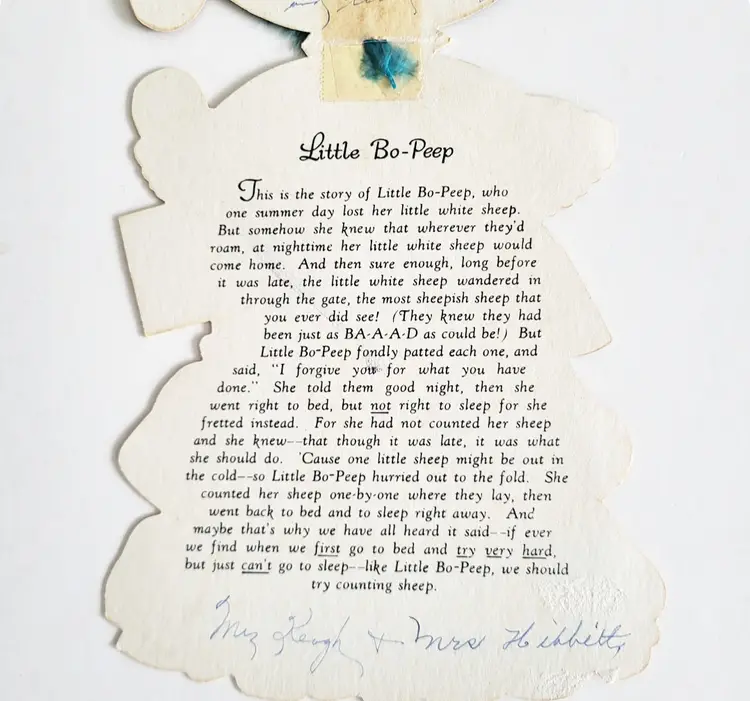 and
Little Bo-Peep
This is the story of Little Bo-Peep, who
one summer day lost her little white sheep.
But somehow she knew that wherever they'd
roam, at nighttime her little white sheep would
come home. And then sure enough, long before
it was late, the little white sheep wandered in
through the gate, the most sheepish sheep that
you ever did see! (They knew they had
been just as BA-A-A-D as could be!) But
Little Bo-Peep fondly patted each one, and
said, "I forgive you for what you have
done." She told them good night, then she
went right to bed, but not right to sleep for she
fretted instead. For she had not counted her sheep
and she knew--that though it was late, it was what
she should do. 'Cause one little sheep might be out in
the cold--so Little Bo-Peep hurried out to the fold. She
counted her sheep one-by-one where they lay, then
went back to bed and to sleep right away. And
maybe that's why we have all heard it said--if ever
we find when we first go to bed and try very hard,
but just can't go to sleep--like Little Bo-Peep, we should
try counting sheep.
Mrs Keogh + Mrs Hibbitts